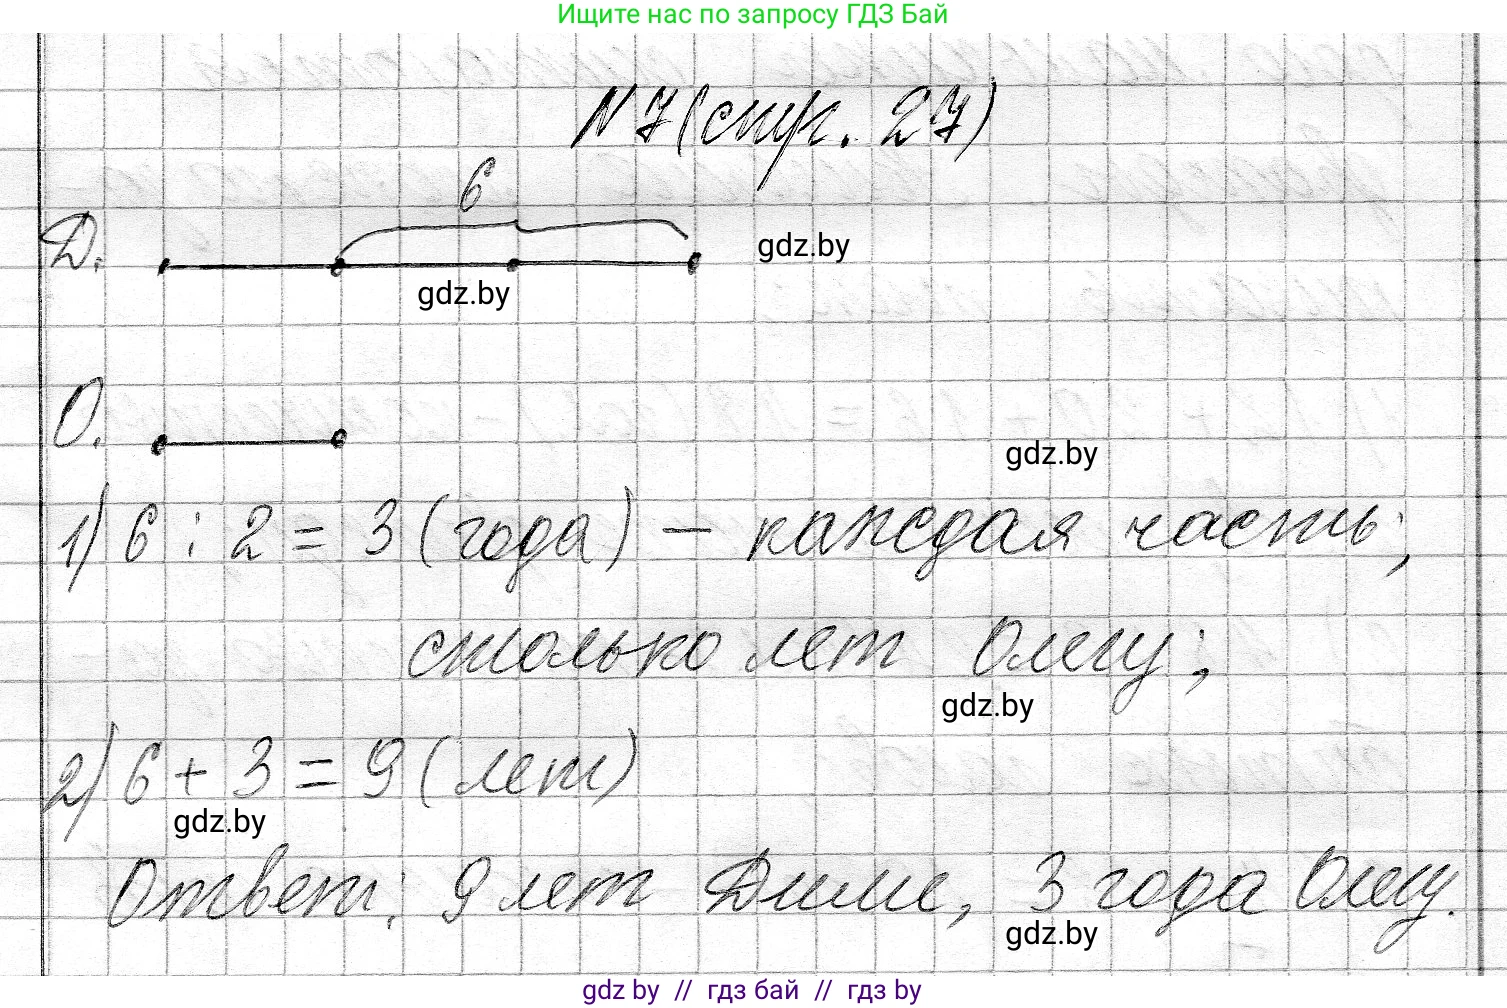 Ищите нас по запросу ГДЗ Бай
N 7 (стр. 27)
6
Д.
gdz.by
gdz.by
О.
gdz.by
1) 6 : 2 = 3 (года) – каждая часть;
столько лет Олегу;
gdz.by
2) 6 + 3 = 9 (лет)
gdz.by
Ответ: 9 лет Диме, 3 года Олегу.
gdz.by
gdz by // гдз бай // гдз by